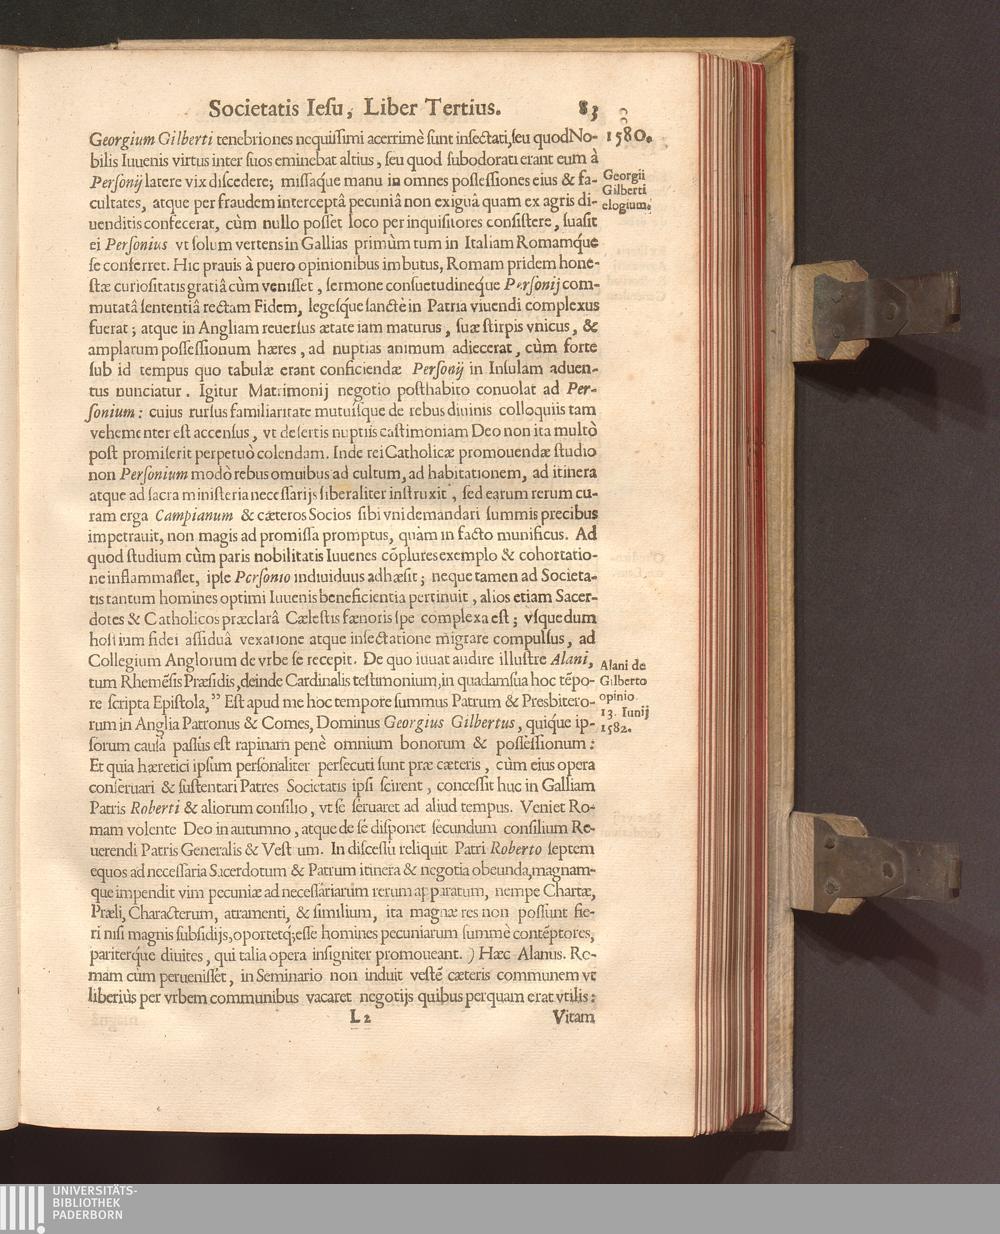 Societatis Iesu, Liber Tertius. 83
Georgium Gilberti tenebriones nequissimi acerrimè sunt insectati, seu quod No-
bilis Iuuenis virtus inter suos eminebat altius, seu quod subodorati erant eum à
Personij latere vix discedere; missaque manu in omnes possessiones eius & fa-
cultates, atque per fraudem interceptâ pecuniâ non exiguâ quam ex agris di-
uenditis confecerat, cùm nullo posset loco per inquisitores consistere, suasit
ei Personius vt solum vertens in Gallias primùm tum in Italiam Romamq́ue
se conferret. Hic prauis à puero opinionibus imbutus, Romam pridem hone-
stæ curiositatis gratiâ cùm venisset, sermone consuetudineq́ue Personij com-
mutatâ sententiâ rectam Fidem, legesq́ue sanctè in Patria viuendi complexus
fuerat; atque in Angliam reuersus ætate iam maturus, suæ stirpis vnicus, &
amplarum possessionum hæres, ad nuptias animum adiecerat, cùm forte
sub id tempus quo tabulæ erant conficiendæ Personij in Insulam aduen-
tus nunciatur. Igitur Matrimonij negotio posthabito conuolat ad Per-
sonium: cuius rursus familiaritate mutuisque de rebus diuinis colloquiis tam
vehementer est accensus, vt desertis nuptiis castimoniam Deo non ita multò
post promiserit perpetuò colendam. Inde rei Catholicæ promouendæ studio
non Personium modò rebus omnibus ad cultum, ad habitationem, ad itinera
atque ad sacra ministeria necessarijs liberaliter instruxit, sed earum rerum cu-
ram erga Campianum & cæteros Socios sibi vni demandari summis precibus
impetrauit, non magis ad promissa promptus, quam in facto munificus. Ad
quod studium cùm paris nobilitatis Iuuenes cõplures exemplo & cohortatio-
ne inflammasset, ipse Personio indiuiduus adhæsit; neque tamen ad Societa-
tis tantum homines optimi Iuuenis beneficientia pertinuit, alios etiam Sacer-
dotes & Catholicos præclarâ Cælestis fænoris spe complexa est; vsque dum
hostium fidei assiduâ vexatione atque insectatione migrare compulsus, ad
Collegium Anglorum de vrbe se recepit. De quo iuuat audire illustre Alani,
tum Rhemẽsis Præsidis, deinde Cardinalis testimonium, in quadam sua hoc tẽpo-
re scripta Epistola, ” Est apud me hoc tempore summus Patrum & Presbitero-
rum in Anglia Patronus & Comes, Dominus Georgius Gilbertus, quiq́ue ip-
sorum causa passus est rapinam penè omnium bonorum & possessionum:
Et quia hæretici ipsum personaliter persecuti sunt præ cæteris, cùm eius opera
conseruari & sustentari Patres Societatis ipsi scirent, concessit huc in Galliam
Patris Roberti & aliorum consilio, vt se seruaret ad aliud tempus. Veniet Ro-
mam volente Deo in autumno, atque de se disponet secundum consilium Re-
uerendi Patris Generalis & Vestrum. In discessu reliquit Patri Roberto septem
equos ad necessaria Sacerdotum & Patrum itinera & negotia obeunda, magnam-
que impendit vim pecuniæ ad necessariarum rerum apparatum, nempe Chartæ,
Præli, Characterum, atramenti, & similium, ita magnæ res non possunt fie-
ri nisi magnis subsidijs, oportetq́; esse homines pecuniarum summè contẽptores,
pariterq́ue diuites, qui talia opera insigniter promoueant. ) Hæc Alanus. Ro-
mam cùm peruenisset, in Seminario non induit vestẽ cæteris communem vt
liberiùs per vrbem communibus vacaret negotijs quibus perquam erat vtilis:
L 2 Vitam
1580.
Georgii
Gilberti
elogium.
Alani de
Gilberto
opinio
13. Iunij
1582.
UNIVERSITÄTS-
BIBLIOTHEK
PADERBORN